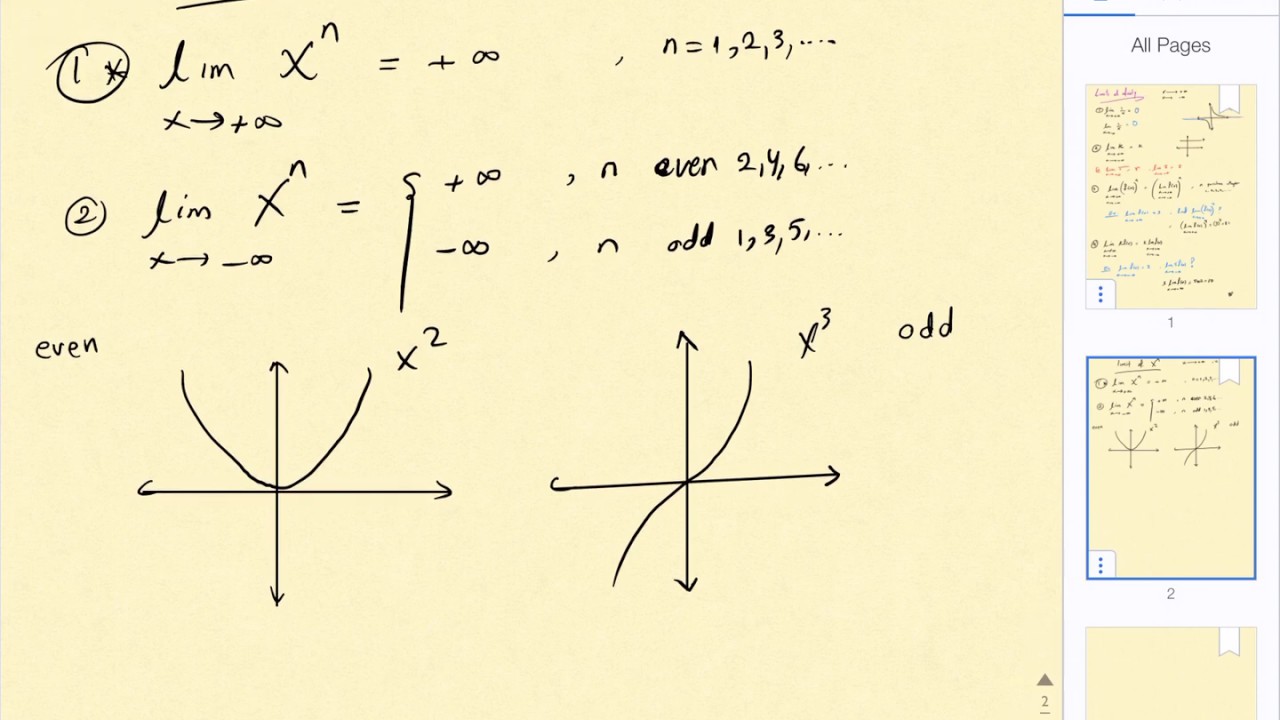 ① * lim x^n = +∞ , n = 1, 2, 3, ....
x → +∞
② lim x^n = { +∞ , n even 2, 4, 6, ...
x → -∞
-∞ , n odd 1, 3, 5, ...
even
x^2
x^3
odd
All Pages
1
2
2